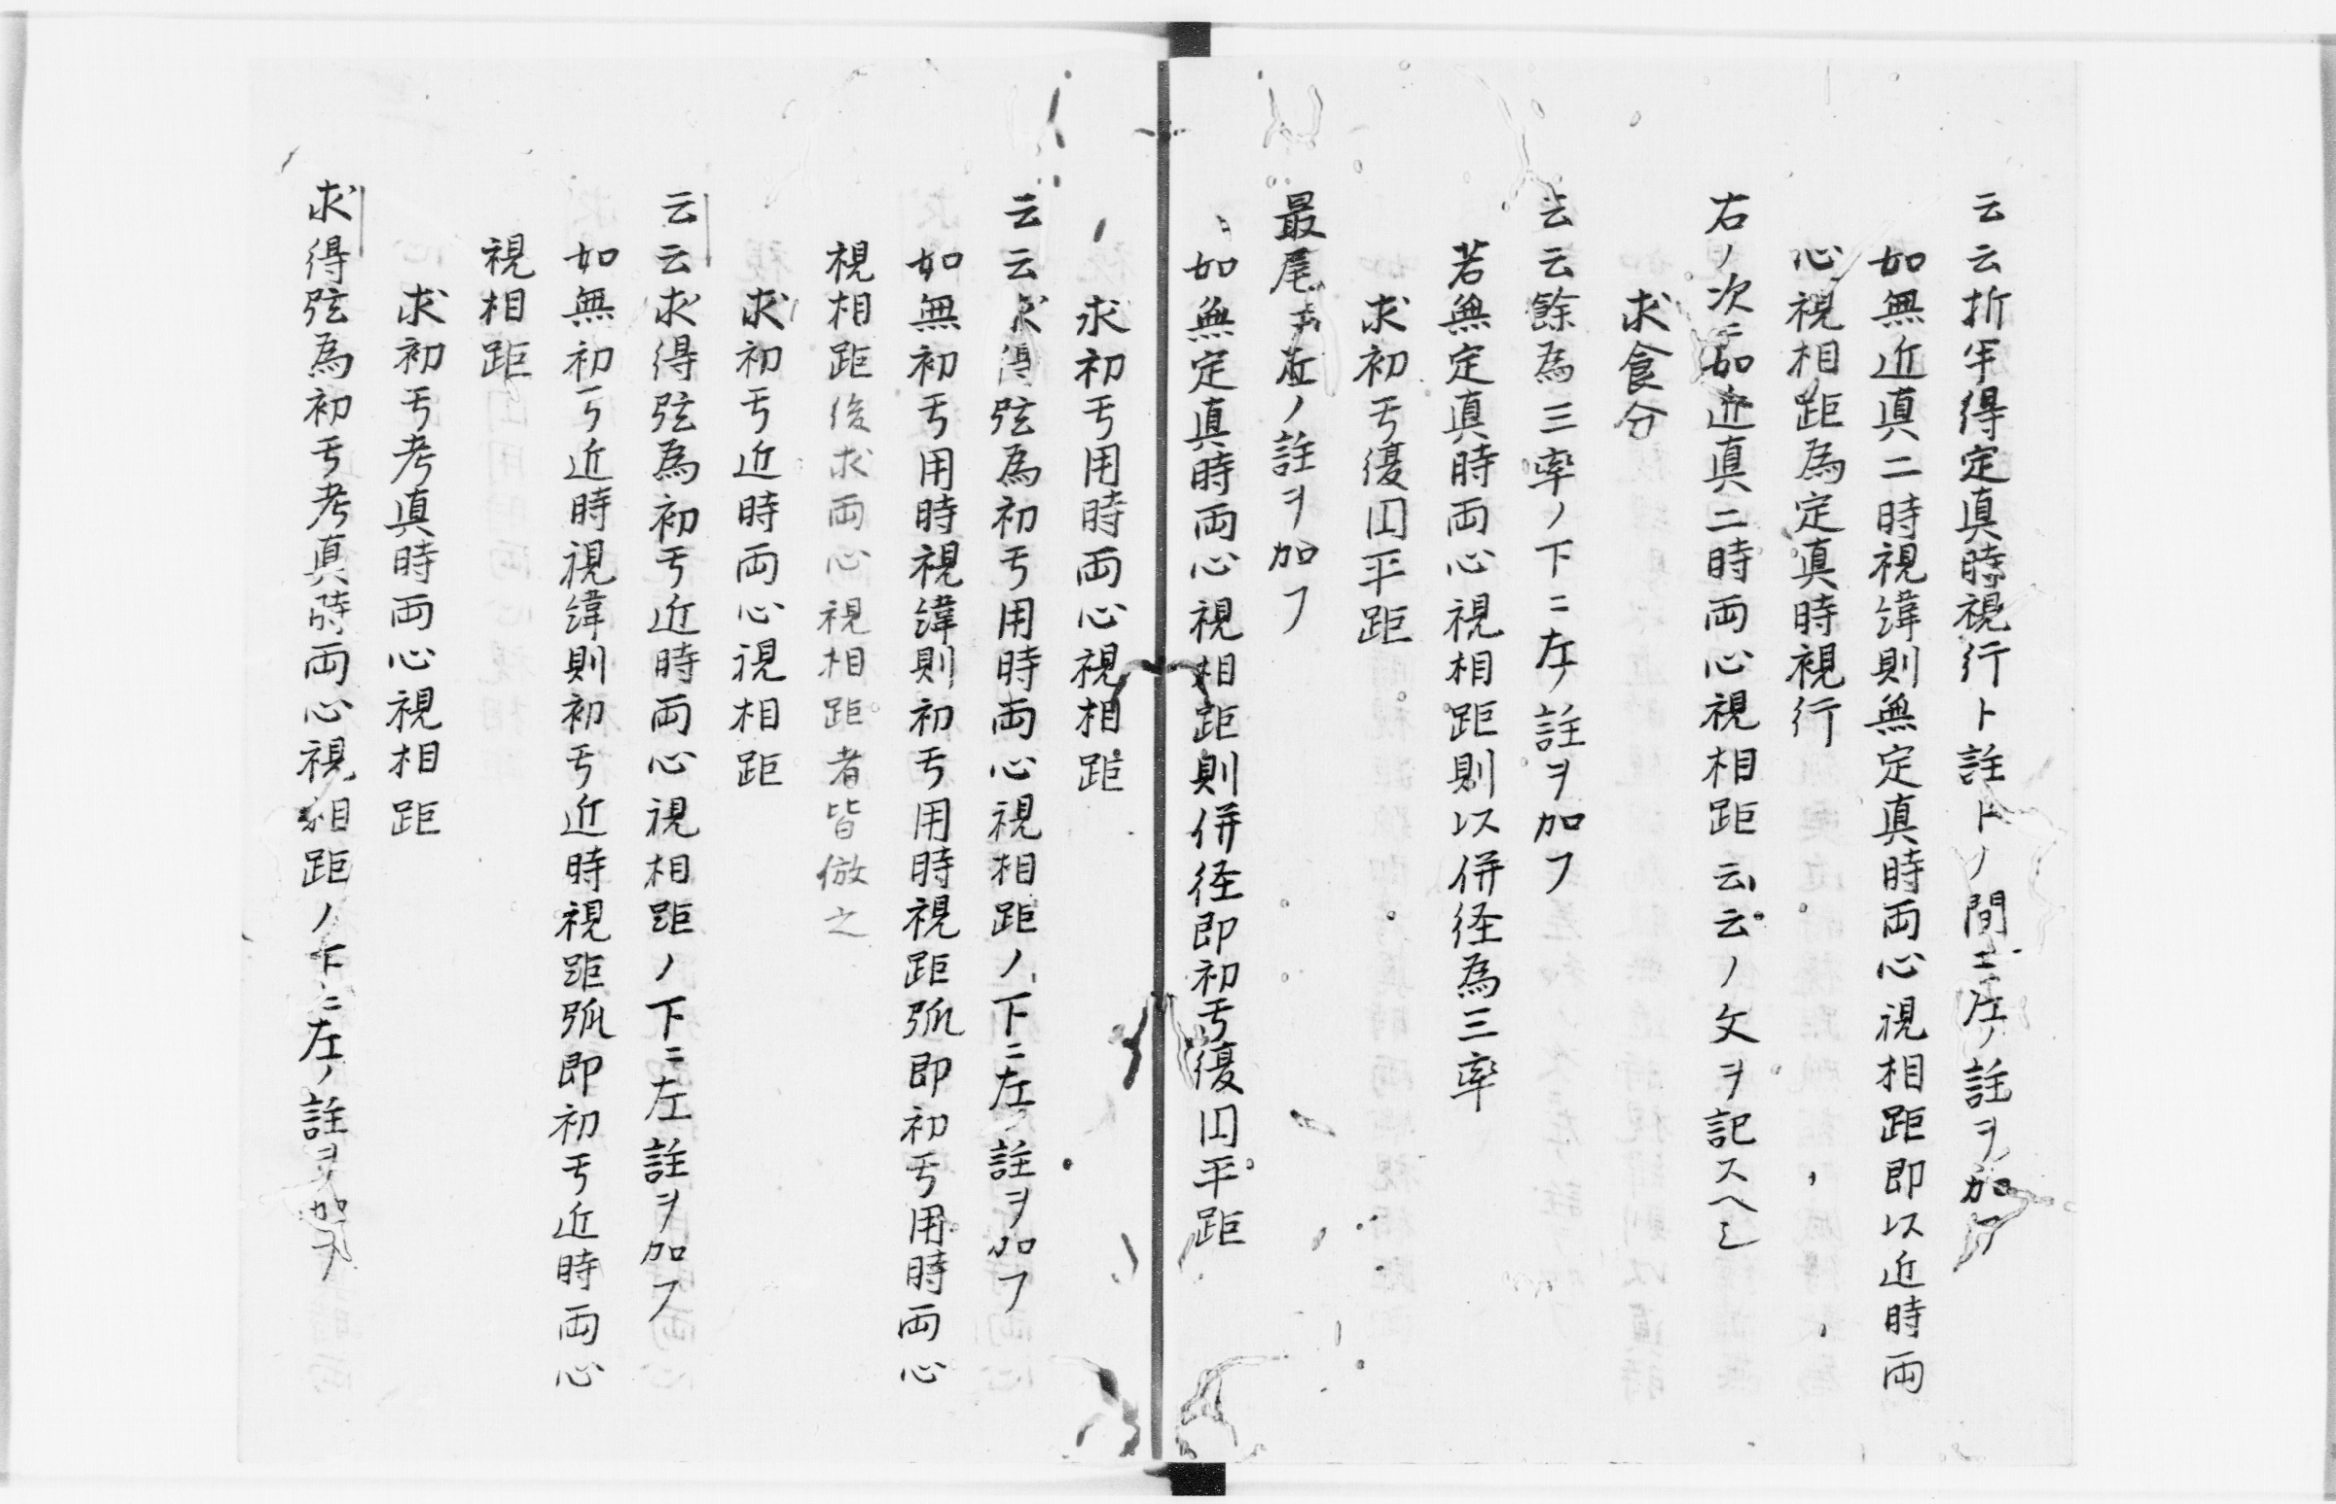 云云折半得定真時視行ト註トノ間ニ左ノ註ヲ加フ
如無近真二時視緯則無定真時両心視相距即以近時両
心視相距為定真時視行
右ノ次ニ如近真二時両心視相距云云ノ文ヲ記スヘシ
求食分
云云餘為三率ノ下ニ左ノ註ヲ加フ
若無定真時両心視相距則以併径為三率
求初亏復囙平距
最尾ニ左ノ註ヲ加フ
如無定真時両心視相距則併径即初亏復囙平距
求初亏用時両心視相距
云云求得弦為初亏用時両心視相距ノ下ニ左ノ註ヲ加フ
如無初亏用時視緯則初亏用時視距弧即初亏用時両心
視相距後求両心視相距者皆倣之
求初亏近時両心視相距
云云求得弦為初亏近時両心視相距ノ下ニ左註ヲ加フ
如無初亏近時視緯則初亏近時視距弧即初亏近時両心
視相距
求初亏考真時両心視相距
求得弦為初亏考真時両心視相距ノ下ニ左ノ註ヲ加フ